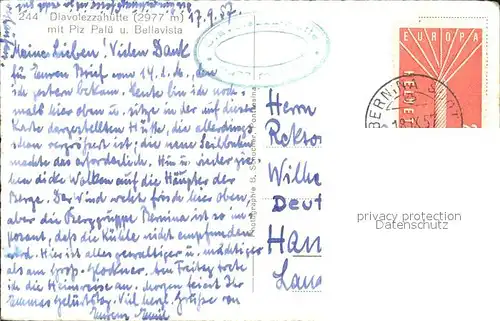 244 Diavolezzahütte (2977 m)
mit Piz Palü u. Bellavista
17.9.57
Meine Lieben! Vielen Dank
für Euren Brief vom 14. d. M., den
ich gestern bekam. Heute bin ich noch-
mals hier oben u. sitze in der auf dieser
Karte dargestellten Hütte, die allerdings
schon vergrößert ist; die neue Seilbahn
machte das erforderlich. Hin u. wieder ziehen
dicke Wolken auf die Häupter der
Berge. Der Wind weht frische hier oben,
aber die Berggruppe Bernina ist so im-
posant, daß die Kühle nicht empfunden
wird. Hier ist alles gewaltiger u. mächtiger
als am Groß-Glockner. Am Freitag trete
ich die Heimreise an. Morgen feiert Ihr
Geburtstag. Viel herzl. Grüße von
Eurem Emil
Photographie B. Schocher, Pontresina
EUROPA
HELVETIA
BERNINA
Herrn
Rektor
Wilhe
Deut
Han
privacy protection
Datenschutz